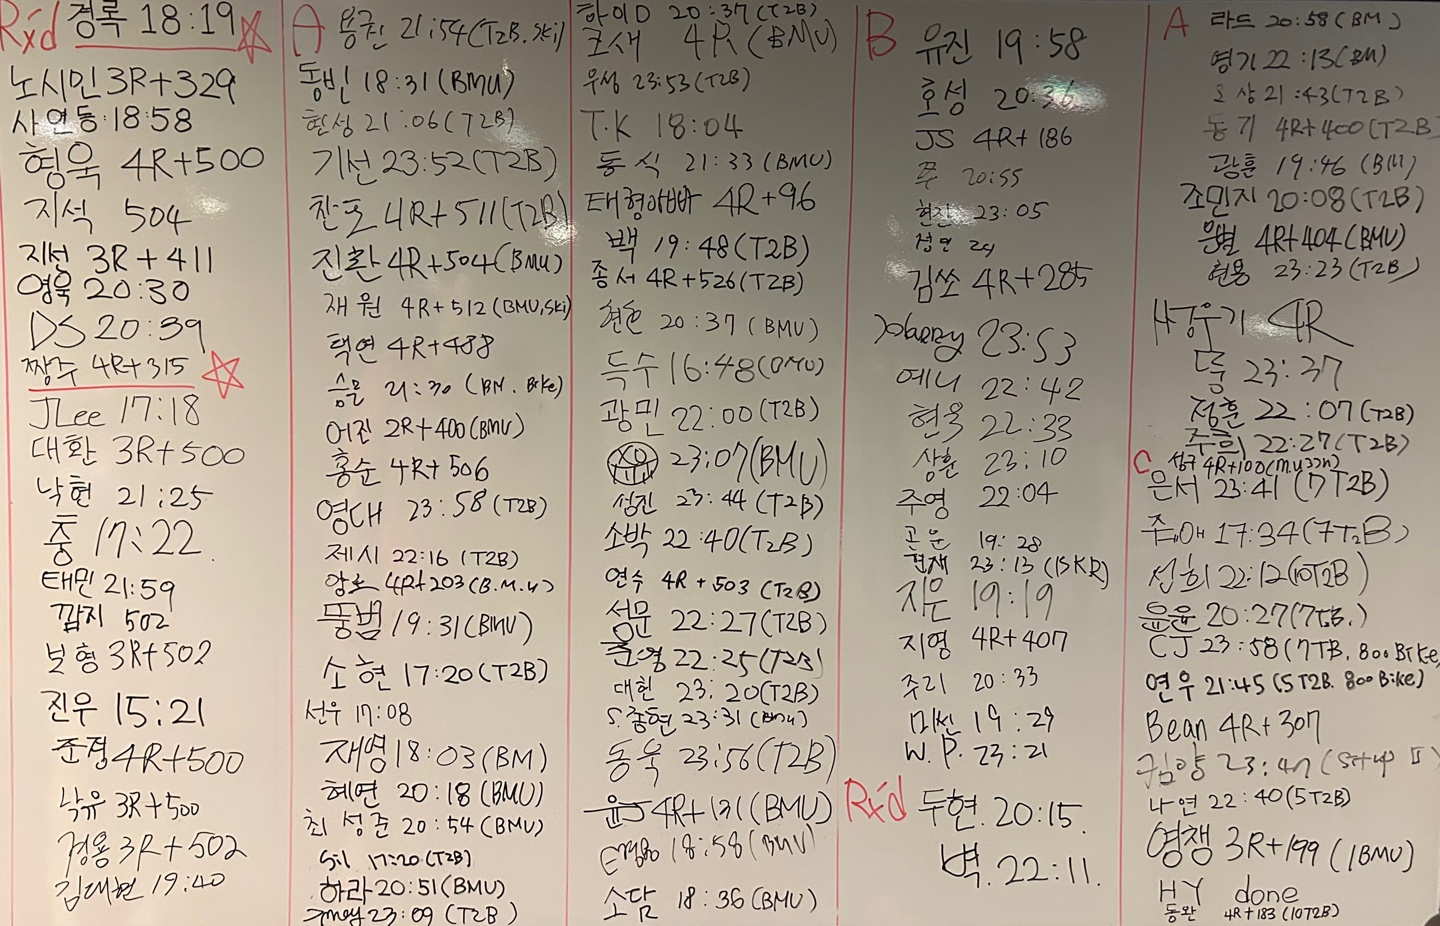 Rx'd 경록 18:19
노시민 3R+329
사연동 18:58
형욱 4R+500
지석 504
지섭 3R+411
영욱 20:30
DS 20:39
짱주 4R+315
JLee 17:18
대환 3R+500
낙현 21:25
중 17:22
태민 21:59
깜지 502
보형 3R+502
진우 15:21
준정 4R+500
낙유 3R+500
경용 3R+502
김대현 19:40
A 용진 21:54(T2B.Ski)
동빈 18:31(BMU)
현성 21:06(T2B)
기선 23:52(T2B)
찬포 4R+511(T2B)
진환 4R+504(BMU)
재원 4R+512(BMU,Ski)
택연 4R+488
승몬 21:30(BM.Bike)
어진 2R+400(BMU)
홍순 4R+506
영대 23:58(T2B)
제시 22:16(T2B)
앙로 4R+203(B.M.U)
뚱범 19:31(BMU)
소현 17:20(T2B)
선우 17:08
재영 18:03(BM)
혜연 20:18(BMU)
최성준 20:54(BMU)
Sil 17:20(T2B)
하라 20:51(BMU)
23:09(T2B)
하이D 20:37(T2B)
조새 4R(BMU)
우성 23:53(T2B)
T.K 18:04
동식 21:33(BMU)
태형아빠 4R+96
백 19:48(T2B)
종서 4R+526(T2B)
현호 20:37(BMU)
득수 16:48(BMU)
광민 22:00(T2B)
23:07(BMU)
성진 23:44(T2B)
소박 22:40(T2B)
연수 4R+503(T2B)
성문 22:27(T2B)
준영 22:25(T2B)
대헌 23:20(T2B)
S.종현 23:31(BMU)
동욱 23:56(T2B)
윤J 4R+131(BMU)
18:58(BMU)
소담 18:36(BMU)
B 유진 19:58
호성 20:36
JS 4R+186
쭈 20:55
현진 23:05
정연 29
김쏘 4R+285
23:53
예니 22:42
현욱 22:33
상훈 23:10
주영 22:04
고운 19:28
현재 23:13(15KR)
지은 19:19
지영 4R+407
주리 20:33
미씬 19:29
W.P. 23:21
Rx'd 두현. 20:15.
벽. 22:11.
A 라드 20:58(BM)
영기 22:13(BM)
오상 21:43(T2B)
동기 4R+400(T2B)
광훈 19:46(BM)
조민지 20:08(T2B)
은별 4R+404(BMU)
현용 23:23(T2B)
4R
둥 23:37
정훈 22:07(T2B)
주희 22:27(T2B)
C 성구 4R+100
은서 23:41(7T2B)
17:34(7T2B)
성희 22:12(10T2B)
윤윤 20:27(7TB.)
CJ 23:58(7TB.800Bike)
연우 21:45(5T2B.800Bike)
Bean 4R+307
김양 23:47(Set-up II)
나연 22:40(5T2B)
영챙 3R+199(1BMU)
HY done
동완 4R+183(10T2B)